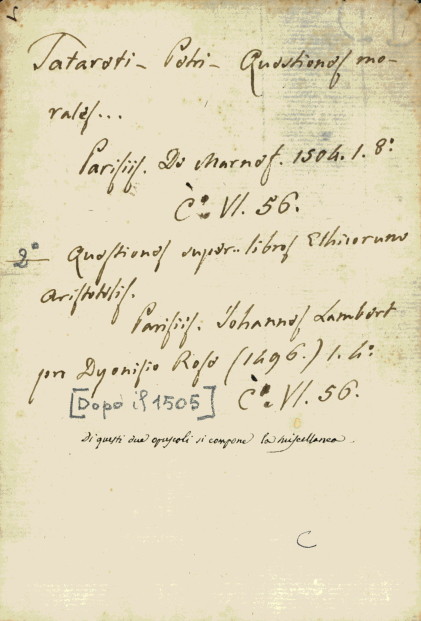 Tatareti - Petri - Quaestiones mo-
rales...
Parisiis. De Marnef. 1504. 1. 8°
C°. VI. 56.
2° Quaestiones super.. libros Ethicorum
Aristotelis.
Parisiis. Johannes Lambert
pro Dyonisio Rose (1496.) 1. 4°
[Dopo il 1505] C°. VI. 56.
Di questi due opuscoli si compone la miscellanea.
C